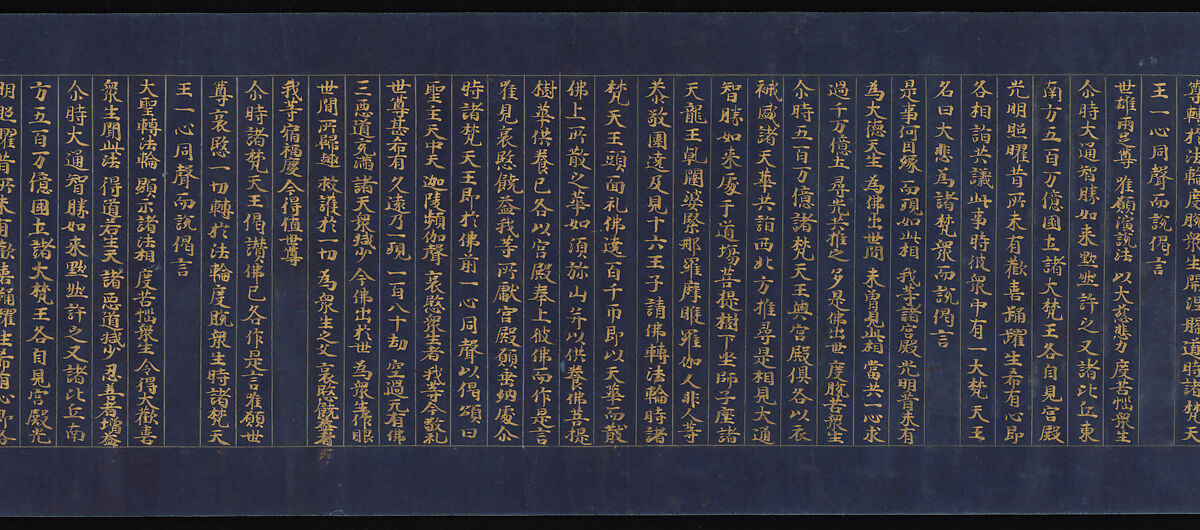 尊轉於法輪度脫衆生開涅槃道時諸梵天
王一心同聲而說偈言
世雄兩足尊 唯願演說法 以大慈悲力 度苦惱衆生
尒時大通智勝如来默然許之又諸比丘東
南方五百万億國土諸大梵王各自見宮殿
光明照曜昔所未有歡喜踊躍生希有心即
各相詣共議此事時彼衆中有一大梵天王
名曰大悲為諸梵衆而說偈言
是事何因緣 而現如此相 我等諸宮殿 光明昔未有
為大德天生 為佛出世間 未曾見此相 當共一心求
過千万億土 尋光共推之 多是佛出世 度脫苦衆生
尒時五百万億諸梵天王與宮殿俱各以衣
裓盛諸天華共詣西北方推尋是相見大通
智勝如来處于道場菩提樹下坐師子座諸
天龍王乹闥婆緊那羅摩睺羅伽人非人等
恭敬圍遶及見十六王子請佛轉法輪時諸
梵天王頭面礼佛遶百千帀即以天華而散
佛上所散之華如須弥山并以供養佛菩提
樹華供養已各以宮殿奉上彼佛而作是言
唯見哀愍饒益我等所獻宮殿願垂納處尒
時諸梵天王即於佛前一心同聲以偈頌曰
聖主天中天 迦陵頻伽聲 哀愍衆生者 我等今敬礼
世尊甚希有 久遠乃一現 一百八十劫 空過无有佛
三惡道充滿 諸天衆減少 今佛出於世 為衆生作眼
世間所歸趣 救護於一切 為衆生之父 哀愍饒益者
我等宿福慶 今得值世尊
尒時諸梵天王偈讚佛已各作是言唯願世
尊哀愍一切轉於法輪度脫衆生時諸梵天
王一心同聲而說偈言
大聖轉法輪 顯示諸法相 度苦惱衆生 令得大歡喜
衆生聞此法 得道若生天 諸惡道減少 忍善者增益
尒時大通智勝如来默然許之又諸比丘南
方五百万億國土諸大梵王各自見宮殿光
明照曜昔所未有歡喜踊躍生希有心即各